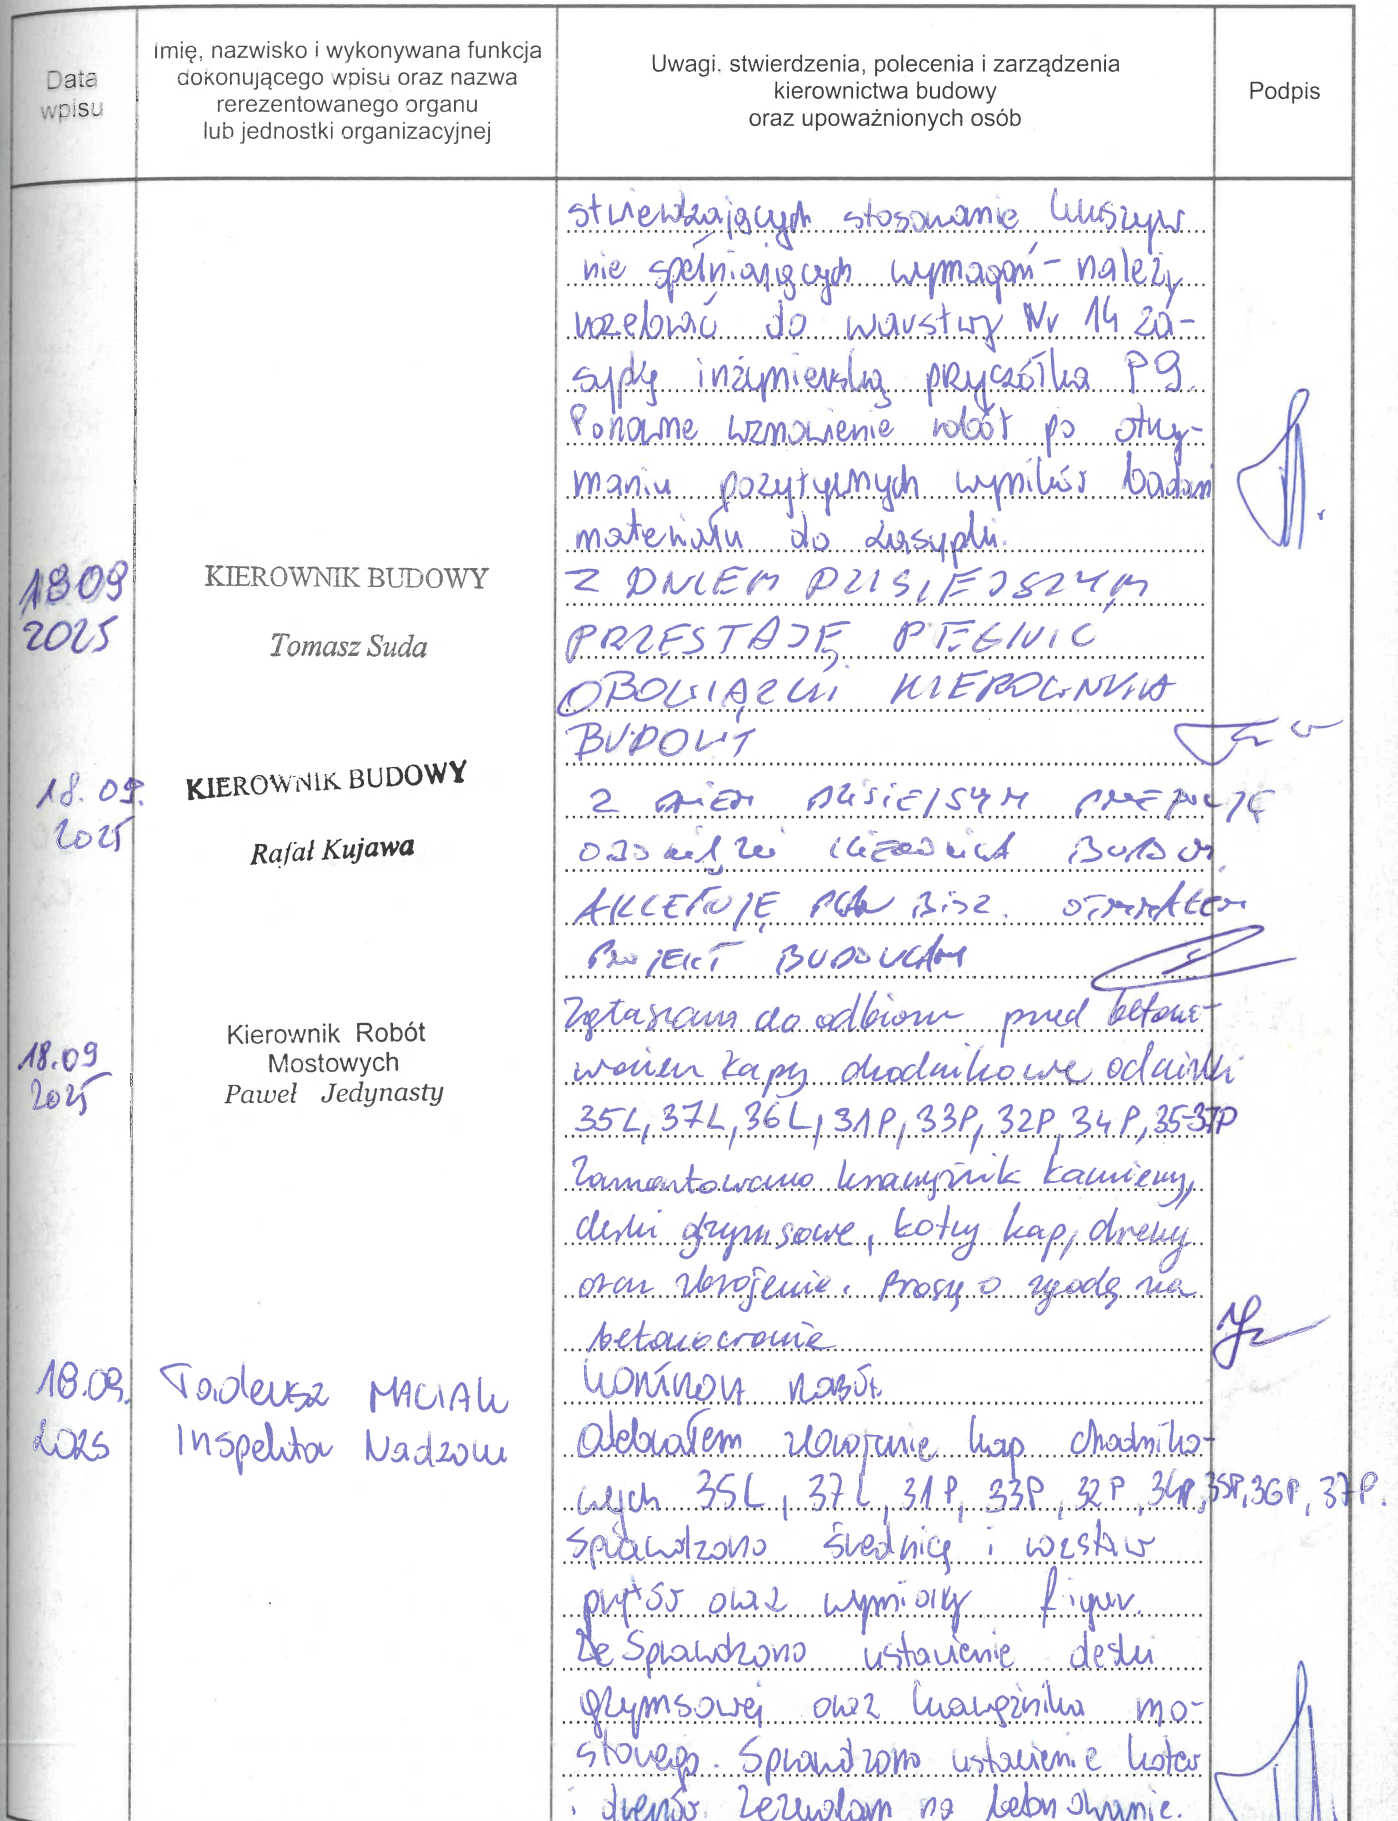 Data
wpisu
Imię, nazwisko i wykonywana funkcja
dokonującego wpisu oraz nazwa
rerezentowanego organu
lub jednostki organizacyjnej
Uwagi, stwierdzenia, polecenia i zarządzenia
kierownictwa budowy
oraz upoważnionych osób
Podpis
stwierdzających stosowanie kruszyw
nie spełniających wymagań - należy
rozebrać do warstwy Nr 14 za-
sypkę inżynierską przyczółka P9.
Ponowne wznowienie robót po otrzy-
maniu pozytywnych wyników badań
materiału do zasypki.
18 09
2025
KIEROWNIK BUDOWY
Tomasz Suda
Z DNIEM DZISIEJSZYM
PRZESTAJĘ PEŁNIĆ
OBOWIĄZKI KIEROWNIKA
BUDOWY
18. 09.
2025
KIEROWNIK BUDOWY
Rafał Kujawa
Z DNIEM DZISIEJSZYM PRZEJMUJĘ
OBOWIĄZKI KIEROWNIKA BUDOWY.
AKCEPTUJĘ PLAN BIOZ. OTRZYMAŁEM
PROJEKT BUDOWLANY
18.09
2025
Kierownik Robót
Mostowych
Paweł Jedynasty
Zgłaszam do odbioru przed betono-
waniem kapy chodnikowe odcinki
35L, 37L, 36L, 31P, 33P, 32P, 34P, 35-37P
Zamontowano krawężnik kamienny,
deski gzymsowe, kotwy kap, dreny
oraz zbrojenie. Proszę o zgodę na
betonowanie
18.09.
2025
Tadeusz MACIAK
Inspektor Nadzoru
KONTROLA ROBÓT.
Odebrałem zbrojenie kap chodniko-
wych 35L, 37L, 31P, 33P, 32P, 34P, 35P, 36P, 37P.
Sprawdzono średnicę i rozstaw
prętów oraz wymiary figur.
Sprawdzono ustawienie deski
gzymsowej oraz krawężnika mo-
stowego. Sprawdzono ustawienie kotew
i drenów. Zezwalam na betonowanie.